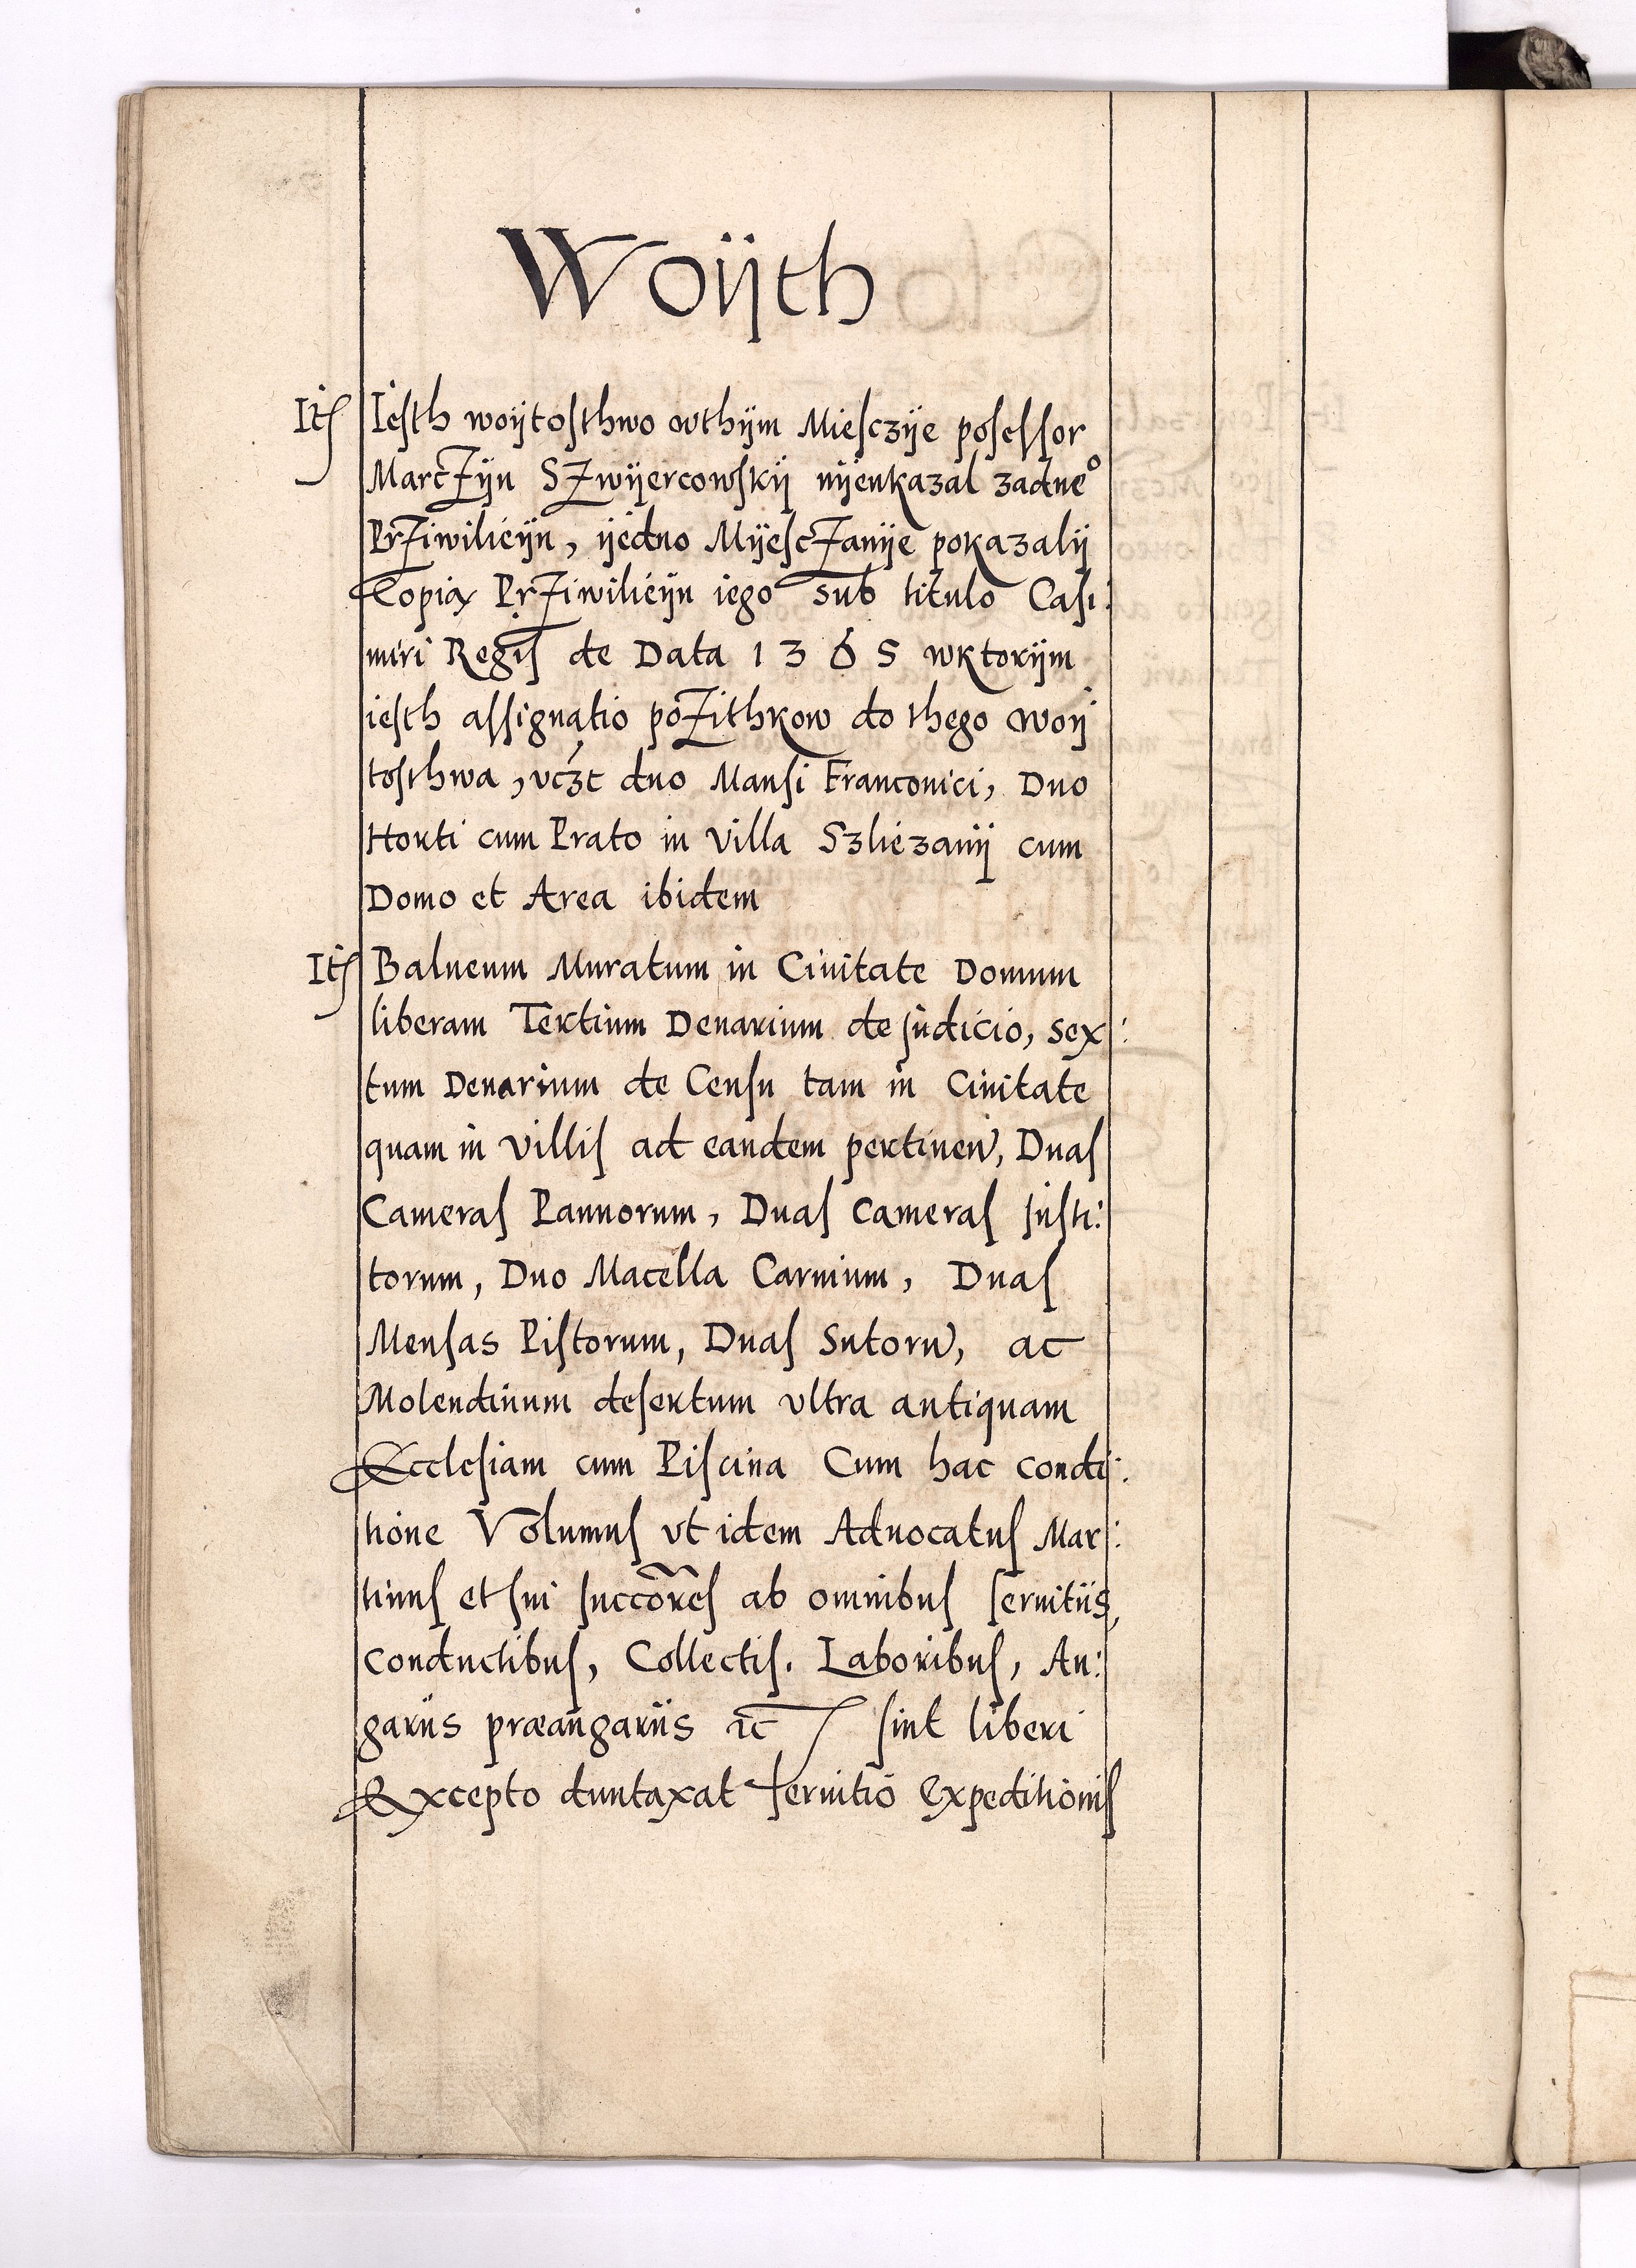 Woijth
Itꝭ Iesth woijtosthwo wthijm Miesczije posessor
Marczijn Szwijercowskij nijenkazal zadneo
Prziwilieijn, ijedno Mijesczanije pokazalij
Copią Prziwilieijn iego sub titulo Casi:
miri Regis de Data 1365 wktorijm
iesth assignatio pozithkow do thego woij
tosthwa, vczt duo Mansi Franconici, Duo
Horti cum Prato in Villa Szliezanij cum
Domo et Area ibidem
Itꝭ Balneum Muratum in Ciuitate Domum
liberam Tertium Denarium de Judicio, Sex:
tum Denarium de Censu tam in Ciuitate
quam in Villis ad eandem pertinen, Duas
Cameras Pannorum, Duas Cameras Insti:
torum, Duo Macella Carnium, Duas
Mensas Pistorum, Duas Sutorũ, ac
Molendinum desertum vltra antiquam
Ecclesiam cum Piscina Cum hac condi:
tione Volumus vt idem Aduocatus Mar:
tinus et sui succores ab omnibus seruitiis,
Conductibus, Collectis. Laboribus, An:
gariis præangariis ec sint liberi
Excepto duntaxat seruitio Expeditionis